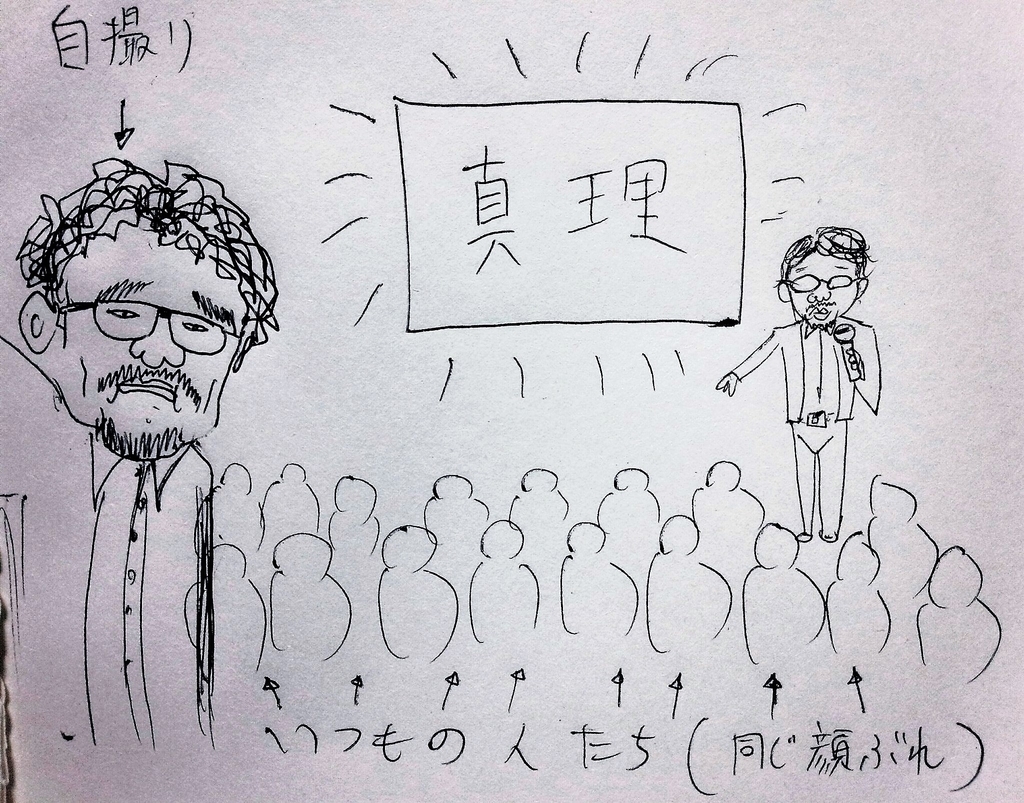 自撮り
真理
いつもの人たち(同じ顔ぶれ)